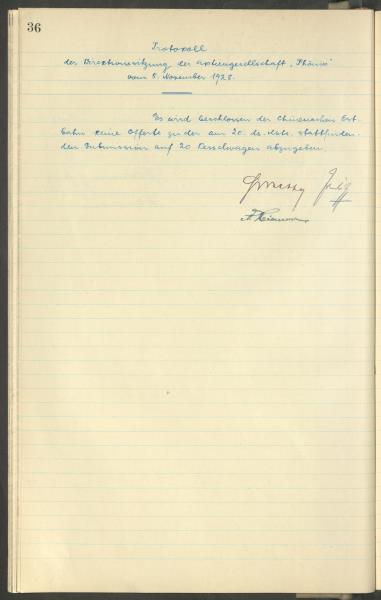 36
Protokoll
der Direktionssitzung der Aktiengesellschaft "Phönix"
vom 8. November 1928.
Es wird beschlossen der Chinesischen Ost-
bahn keine Offerte zu der am 20. ds. Mts. stattfinden-
den Submission auf 20 Kesselwagen abzugeben.